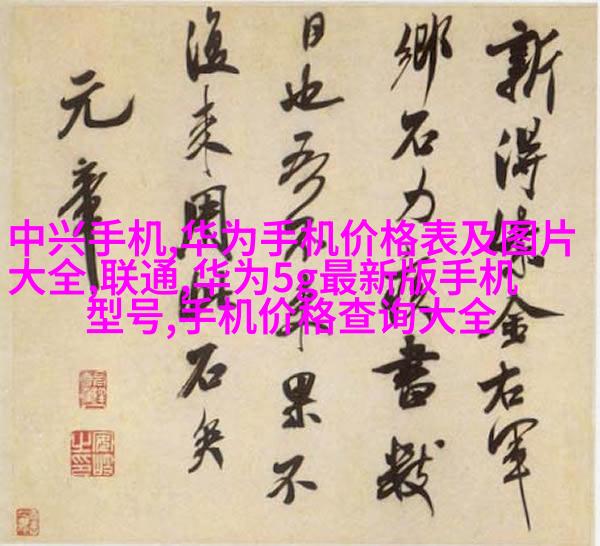 中兴手机,华为手机价格表及图片
大全,联通,华为5g最新版手机
型号,手机价格查询大全
新得金右軍
鄉石力書數
日也吾不果不
復来用石矣
元章